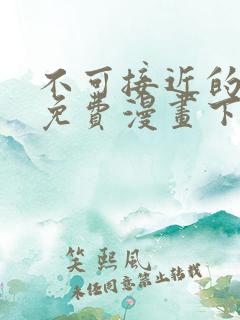 不可接近的
免費漫畫下
笑熙風
未經同意禁止轉載